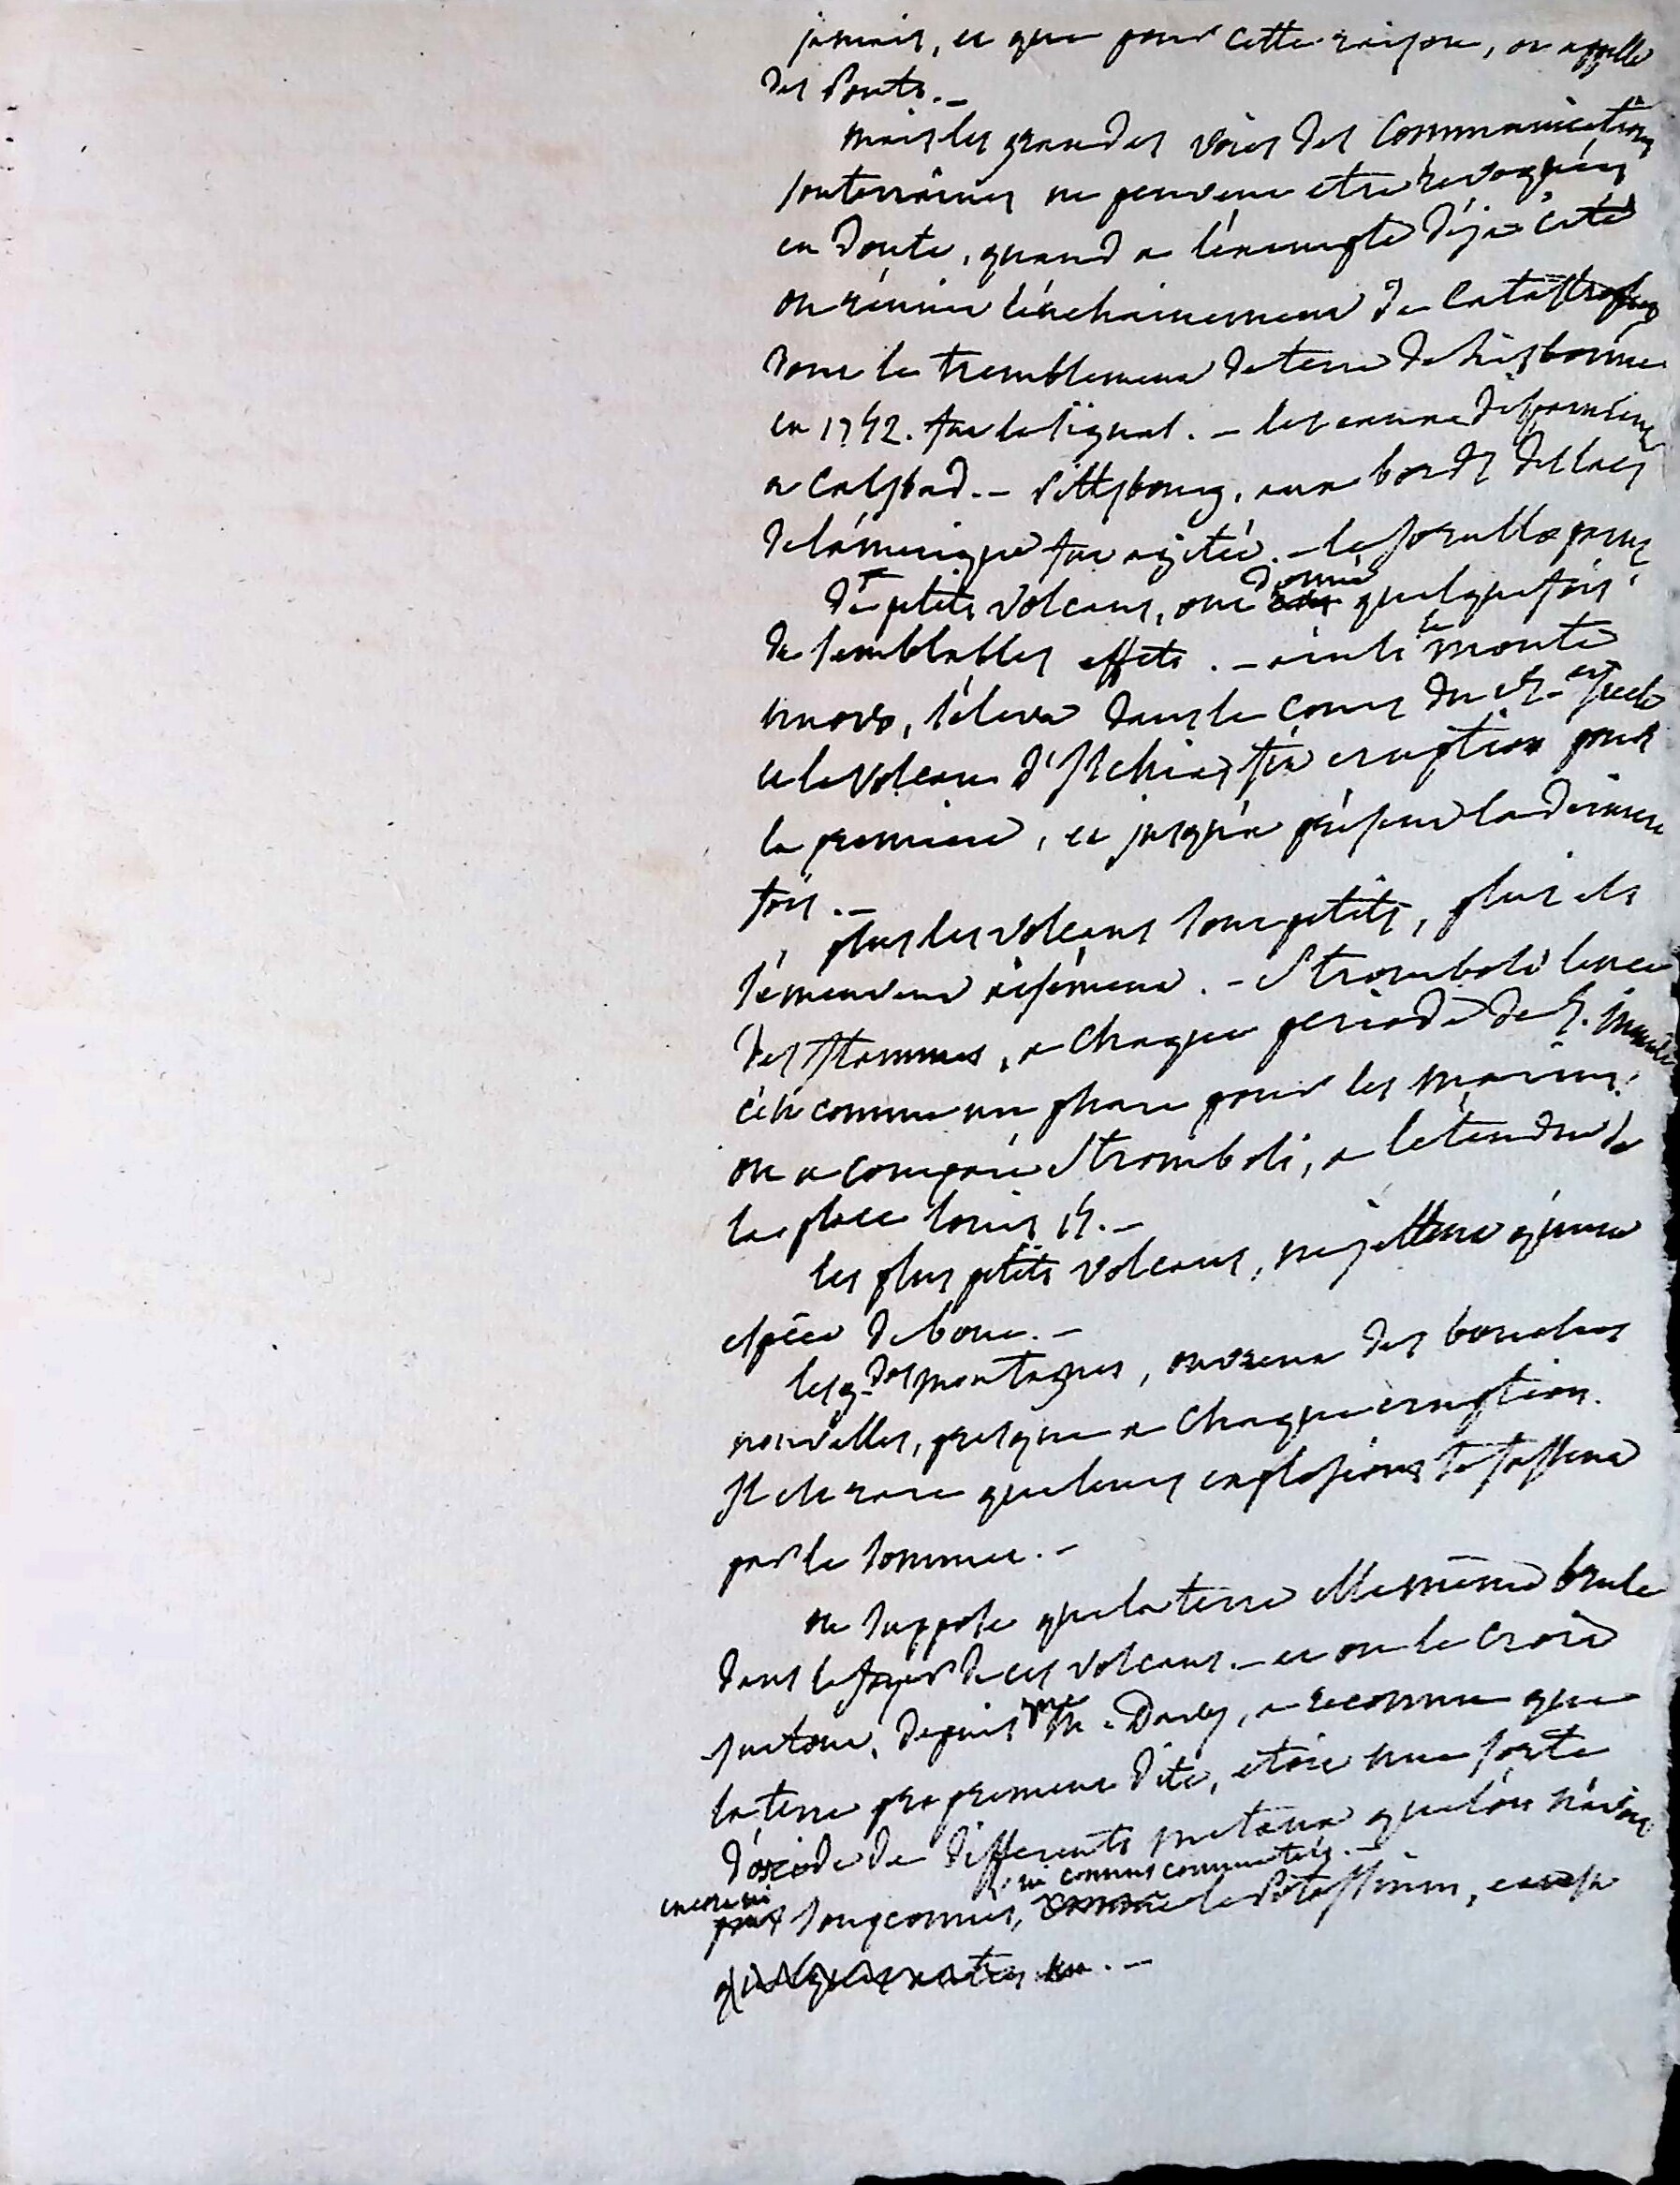 jamais, et que pour cette raison, on appelle
des Ponts. —
mais les grandes voies des Communications
souterraines ne peuvent etre revoquées
en Doute, quand a l'exemple Déja cité
on réunit l'enchainement de Catastrophes
dont le tremblement de terre de Lisbonne
en fut le signal. — les eaux
a Calsbad. — Pittsbourg, aux bords des lacs
de l'amérique fut agitée. — le
De petits volcans, ont donné quelquefois
de semblables effets. — ainsi le monte
nuovo, s'éleva dans le Cours du siecle
et le volcan d'Ischia, fit eruption pour
la premiere, et jusqu'a présent la derniere
fois. —
plus les volcans sont petits, plus ils
s'émeuvent aisément. — Stromboli lance
des flammes, a chaque periode de
c'est comme un phare pour les marins.
on a comparé Stromboli, a letendue de
la place louis —
les plus petits volcans, ne jettent qu'une
espèce de boue. —
les gdes montagnes, ouvrent des bouches
nouvelles, presque a Chaque eruption.
Il est rare que leurs explosions se fassent
par le sommet. —
on suppose que la terre elle même brule
dans le foyer de ces volcans. — et on le croit
surtout, depuis que M. Davy, a reconnu que
la terre proprement dite, etoit une sorte
d'oxide de differents metaux que l'on n'avoit
ni connus constatés. —
encore ni
pas soupçonnés, comme le Potassium,
quelques autres —